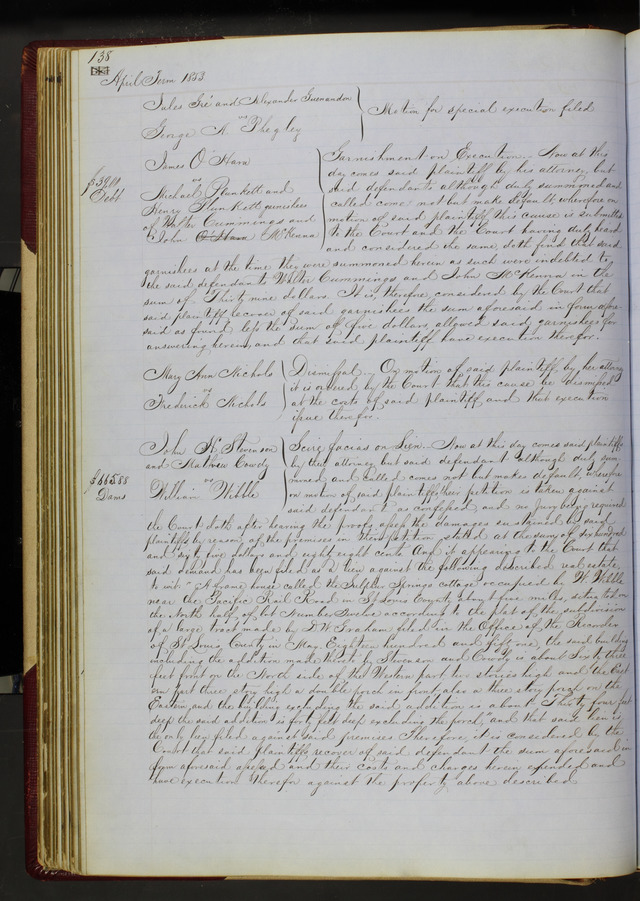 138
April Term 1853
Jules and Alexander
vs
George R. Phegley
Motion for special execution filed
$39.00
Debt
James O'Hara
vs
Michael Plunkett and
Henry Plunkett garnishees
of Walter Cummings and
John O'Hara McKenna
Garnishment on Execution. Now at this
day comes said plaintiff by his attorney but
said defendants although duly summoned and
called come not but make default, wherefore on
motion of said plaintiff this cause is submitted
to the Court and the Court having duly heard
and considered the same doth find that said
garnishees at the time they were summoned herein as such were indebted to
the said defendants Walter Cummings and John McKenna in the
sum of Thirty nine dollars. It is, therefore, considered by the Court that
said plaintiff recover of said garnishees the sum aforesaid in form afore-
said as found less the sum of five dollars, allowed said garnishees for
answering herein, and that said plaintiff have execution therefor.
Mary Ann Nichols
vs
Frederick Nichols
Dismissal. On motion of said plaintiff by her attorney
it is ordered by the Court that this cause be dismissed
at the costs of said plaintiff and that execution
issue therefor.
$665.88
Dams
John H. Stevenson
and Mathew Cowdy
vs
William Wible
Scire facias on Lien. Now at this day comes said plaintiffs
by their attorney but said defendant although duly sum
moned and called comes not but makes default, wherefore
on motion of said plaintiffs their petition is taken against
said defendant as confessed, and no Jury being required
the Court doth after hearing the proofs assess the damages sustained by said
plaintiffs by reason of the premises in their petition stated at the sum of six hundred
and sixty five dollars and eighty eight cents And it appearing to the Court that
said demand has been filed as a lien against the following described real estate,
to wit: "A frame house called the Sulphur Springs cottage, occupied by W. Wible
near the Pacific Rail Road in St Louis County, about five miles, situated on
the North half of lot Number Twelve according to the plat of the subdivision
of a large tract made by D. W. Graham filed in the Office of the Recorder
of St Louis County in May Eighteen hundred and fifty one, the said building
including the addition made thereto by Stevenson and Cowdy is about Sixty three
feet front on the North side of the Western part two stories high and the East
ern part three story high a double porch in front also a three story porch on the
Eastern end the building excluding the said addition is about Thirty four feet
deep the said addition is forty feet deep excluding the porch," and that said lien is
the only lien filed against said premises Therefore, it is considered by the
Court that said plaintiffs recover of said defendant the sum aforesaid in
form aforesaid assessed and their costs and charges herein expended and
have execution therefor against the property above described